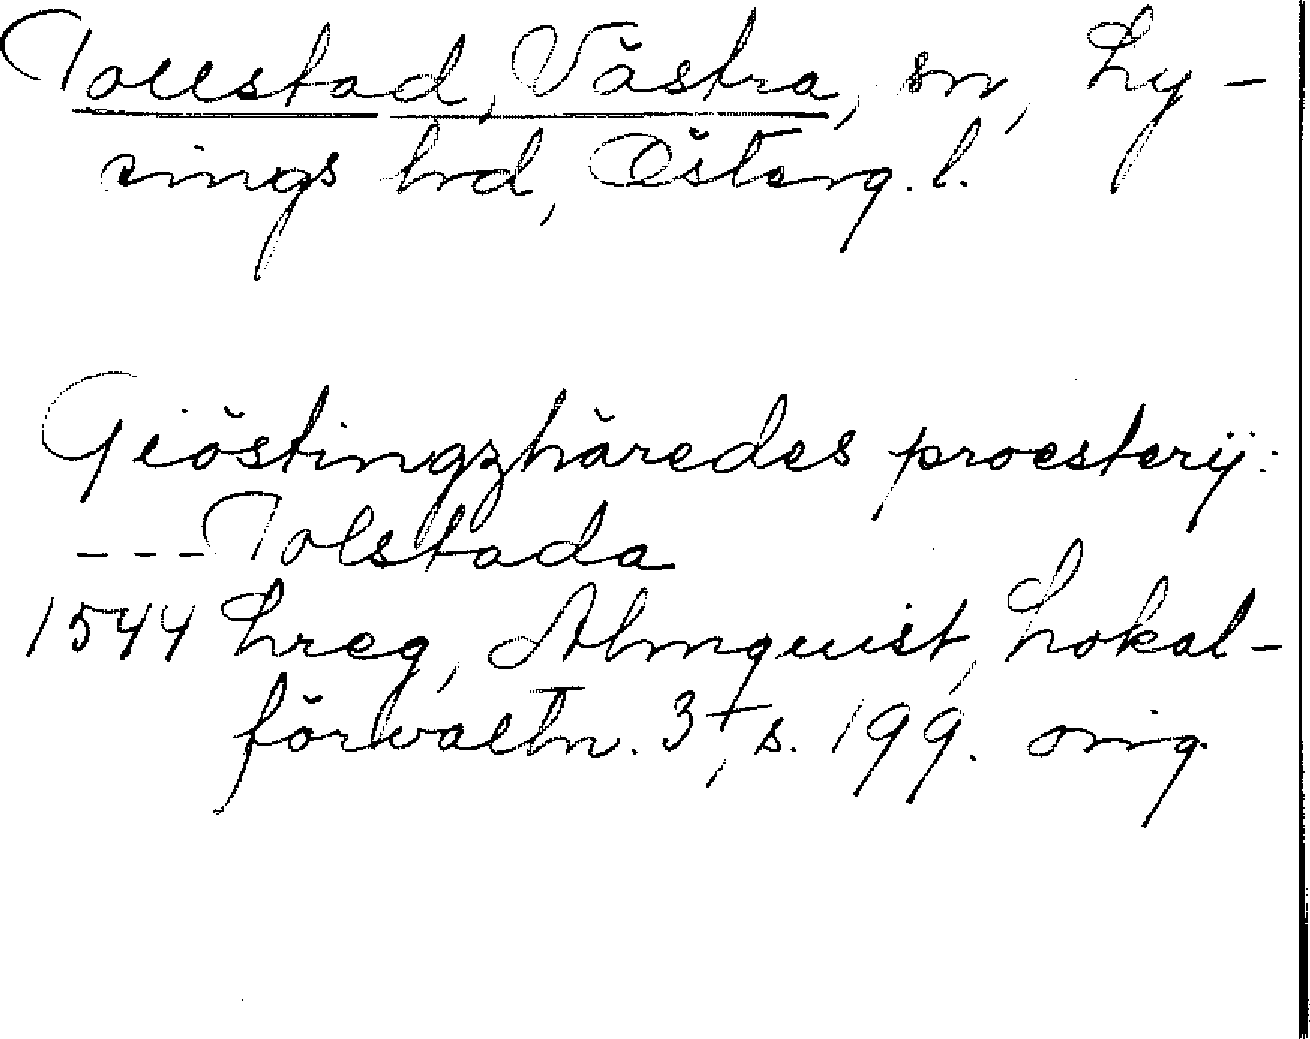 Tollstad, Västra, sn, Ly-
sings hd, Österg. l.
Giöstingzhäredes proesterij:
---Tolstada
1544 Lreg, Almquist, Lokal-
förvaltn. 3+, s. 199. orig